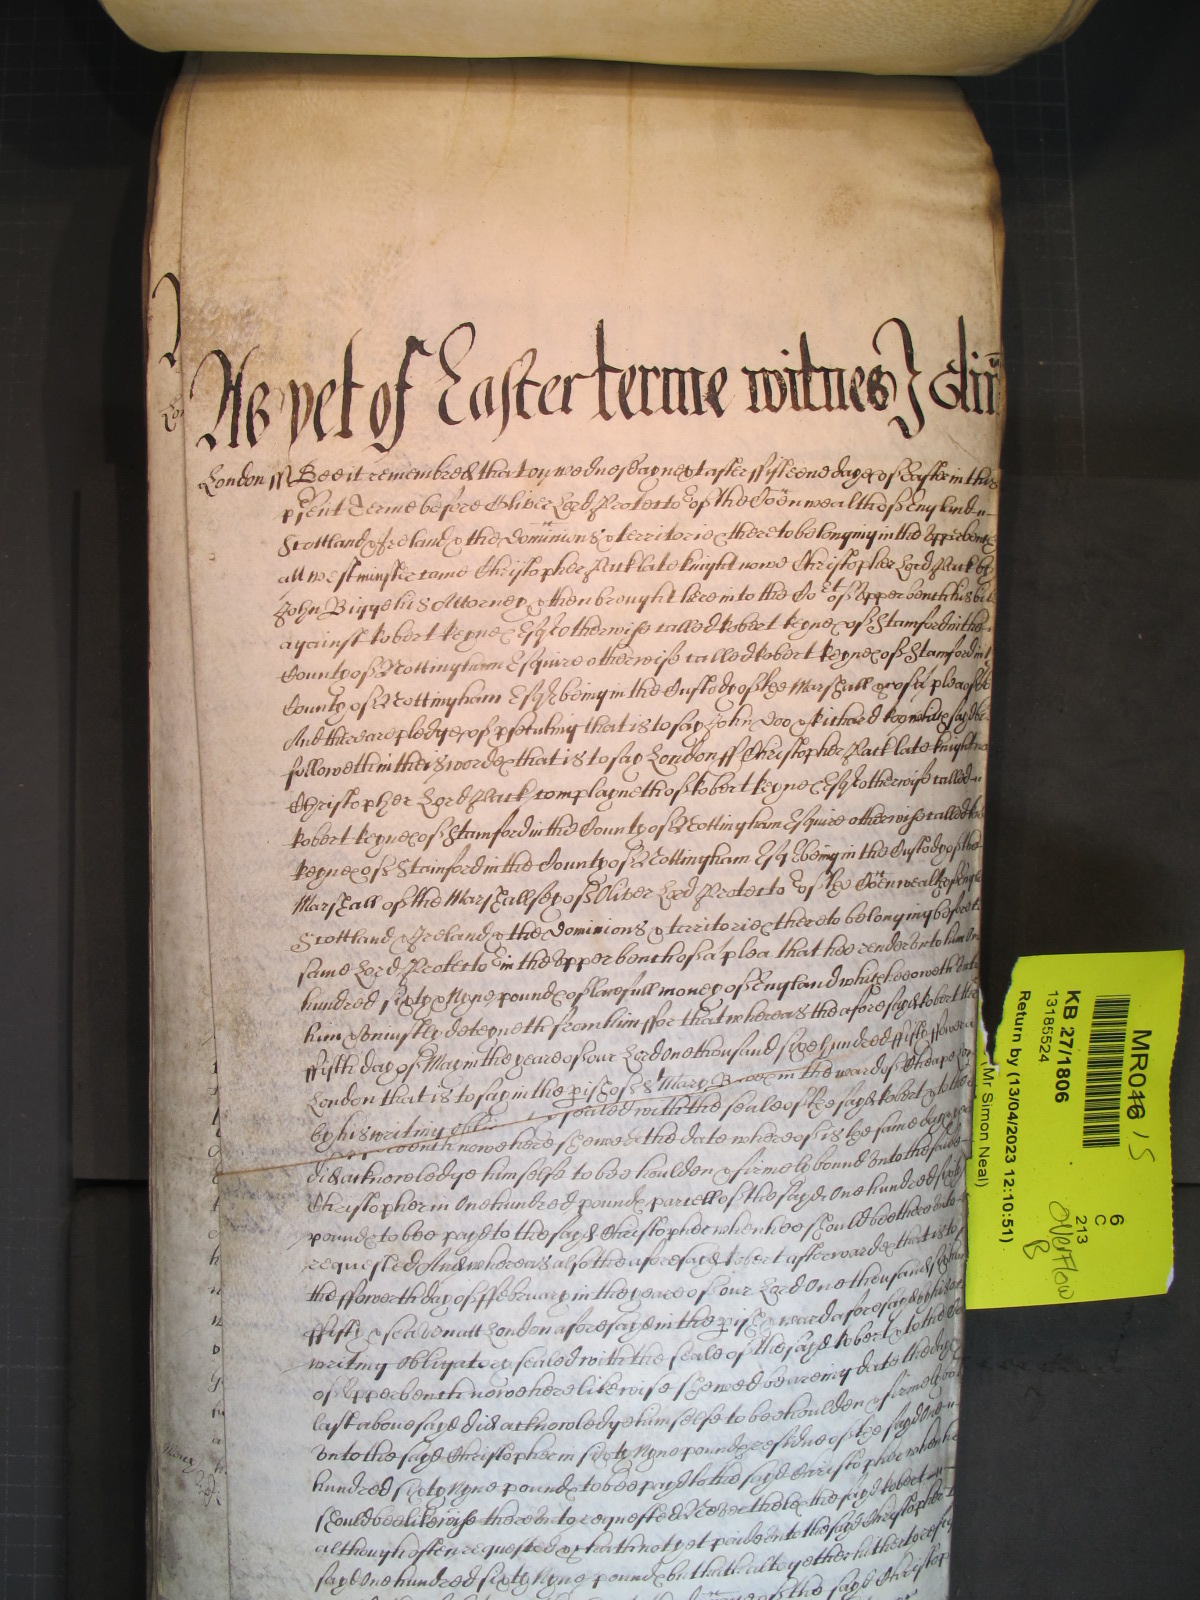 As yet of Easter terme witnes John
London ss Bee it remembred that on wednesday next after fifteene dayes of Easter in this
psent Terme before Oliver Lord Protector of the Comonwealth of England
Scottland & Ireland & the dominions & territories thereto belonging in the upper bench
att westminster came Christopher Pack late knight nowe Christopher Lord Pack by
John Bigge his Attorney & then brought here into the Court of upper bench his bill
against Robert Keyne Esqr otherwise called Robert Keyne of Stamford in the
County of Nottingham Esquire otherwise called Robert Keyne of Stamford in the
County of Nottingham Esqr being in the Custody of the Marshall &c of a plea of debt
And there are pledges of psecuting that is to say John Doo & Richard Roo which said bill
followeth in theis wordes that is to say London ss Christopher Pack late knight nowe
Christopher Lord Pack complayneth of Robert Keyne Esqr otherwise called
Robert Keyne of Stamford in the County of Nottingham Esquire otherwise called Robert
Keyne of Stamford in the County of Nottingham Esqr being in the Custody of the
Marshall of the Marshallsey of Oliver Lord Protector of the Comonwealth of England
Scottland & Ireland & the dominions & territories thereto belonging before the
same Lord Protector in the upper bench of a plea that hee render unto him One
hundred sixty & Nyne poundes of lawfull money of England which hee oweth unto
him & uniustly deteyneth from him ffor that whereas the aforesayd Robert the
ffifth day of May in the yeare of our Lord One thousand sixe hundred ffiftie ffower att
London that is to say in the pish of St Mary in the ward of Cheape
by his writing sealed with the seale of the sayd Robert & to the
nowe here shewed the date whereof is the same day
did acknowledge himselfe to bee houlden & firmely bound unto the sayd
Christopher in One hundred poundes parcell of the sayd One hundred sixty
poundes to bee payd to the sayd Christopher when hee should bee thereunto
requested And whereas also the aforesayd Robert afterwardes that is to say
the ffowerth day of ffebruary in the yeare of our Lord One thousand six hundred
ffifty & seaven att London aforesayd in the pish & ward aforesayd by his
writing obligatory sealed with the seale of the sayd Robert & to the Court
of upper bench nowe here likewise shewed beareing date the day &
last above sayd did acknowledge himselfe to bee houlden & firmely bound
unto the sayd Christopher in sixty Nyne poundes residue of the sayd One
hundred sixty Nyne poundes to bee payd to the sayd Christopher when hee
should bee likewise thereunto requested Neverthelesse the sayd Robert
although often requested &c hath not yet paid unto the sayd Christopher the
sayd One hundred sixty Nyne poundes but that altogether hitherto
the sayd Christopher
MR046 15
KB 27/1806
13185524
Return by (13/04/2023 12:10:51)
(Mr Simon Neal)
6
C
213
Overflow
B